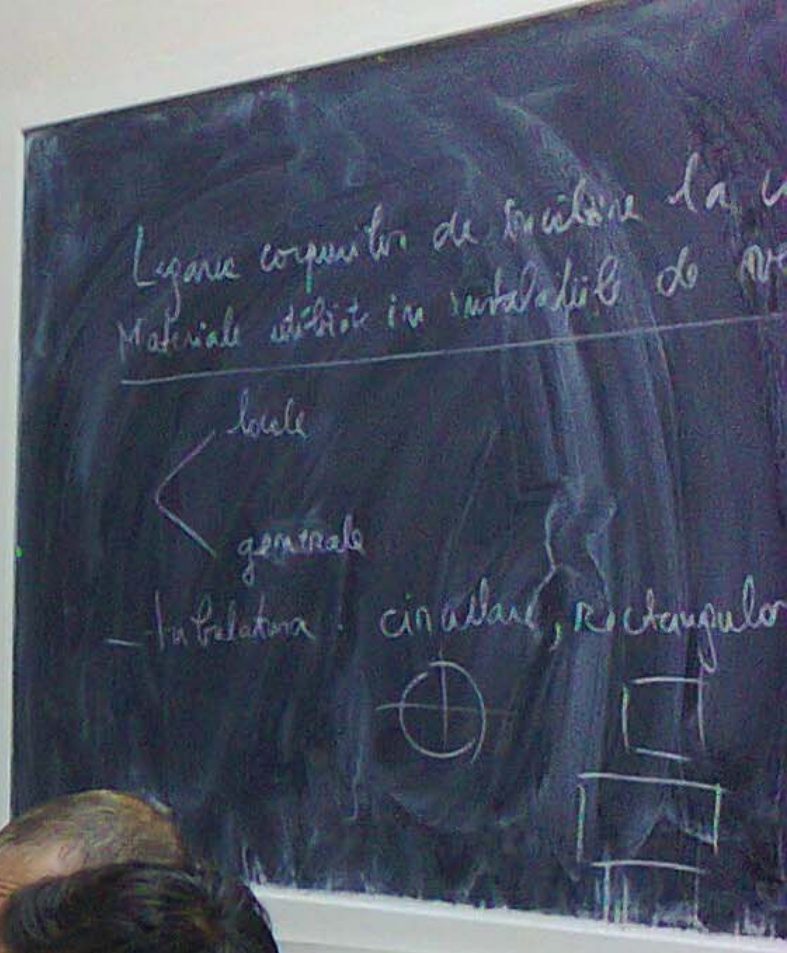 Legarea corpurilor de încălzire la c
Materiale utilizate in instalatiile de ve
locale
generale
- tubulatura circulare, rectangular